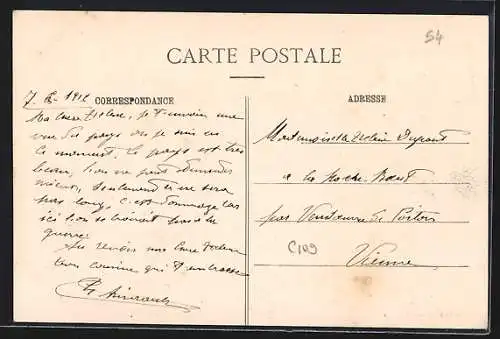 54
CARTE POSTALE
7. 1912 CORRESPONDANCE
Ma chère Hélène, je t'envoie une
vue du pays où je suis en
ce moment, le pays est très
beau, l'on ne peut demander
mieux, seulement ce ne sera
pas long, c'est dommage car
ici l'on se croirait pas à la
guerre.
Au revoir ma chère Hélène
ton cousin qui t'embrasse
ADRESSE
Mademoiselle Hélène Dupont
à la Roche
par Vendeuvre du Poitou
C109
Vienne